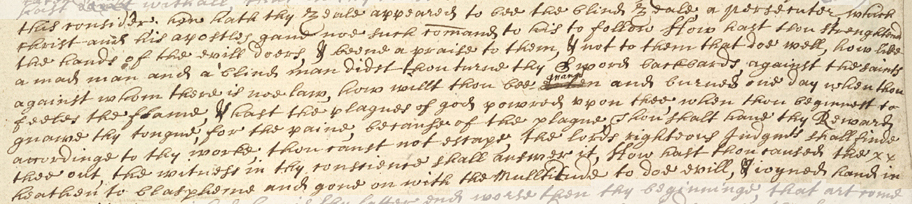 this consider, how hath thy zeale appeared to bee the blind zeale a persecuter, which
Christ and his apostles gave noe such comand to his to follow How hast thou strenghtend
the hands of the evill doers, & beene a praise to them, & not to them that doe well, how like
a mad man and a blind man didst thou turne thy Sword backwards against the saints
against whom there is noe law, how willt thou bee gnawd and burned one day when thou
feeles the flame, & hast the plagues of god powred upon thee when thou beginnest to
gnawe thy tongue, for the paine, because of the plague, Thou shalt have thy Reward
accordinge to thy works, thou canst not escape, the lords righteous Judgmts shall finde
thee out, the witness in thy conscience shall answer it, How hast thou caused the xx
heathen, to blaspheme and gone on with the Mulltitude to doe evill, & ioyned hand in
latter end worse then thy beginninge, that art come